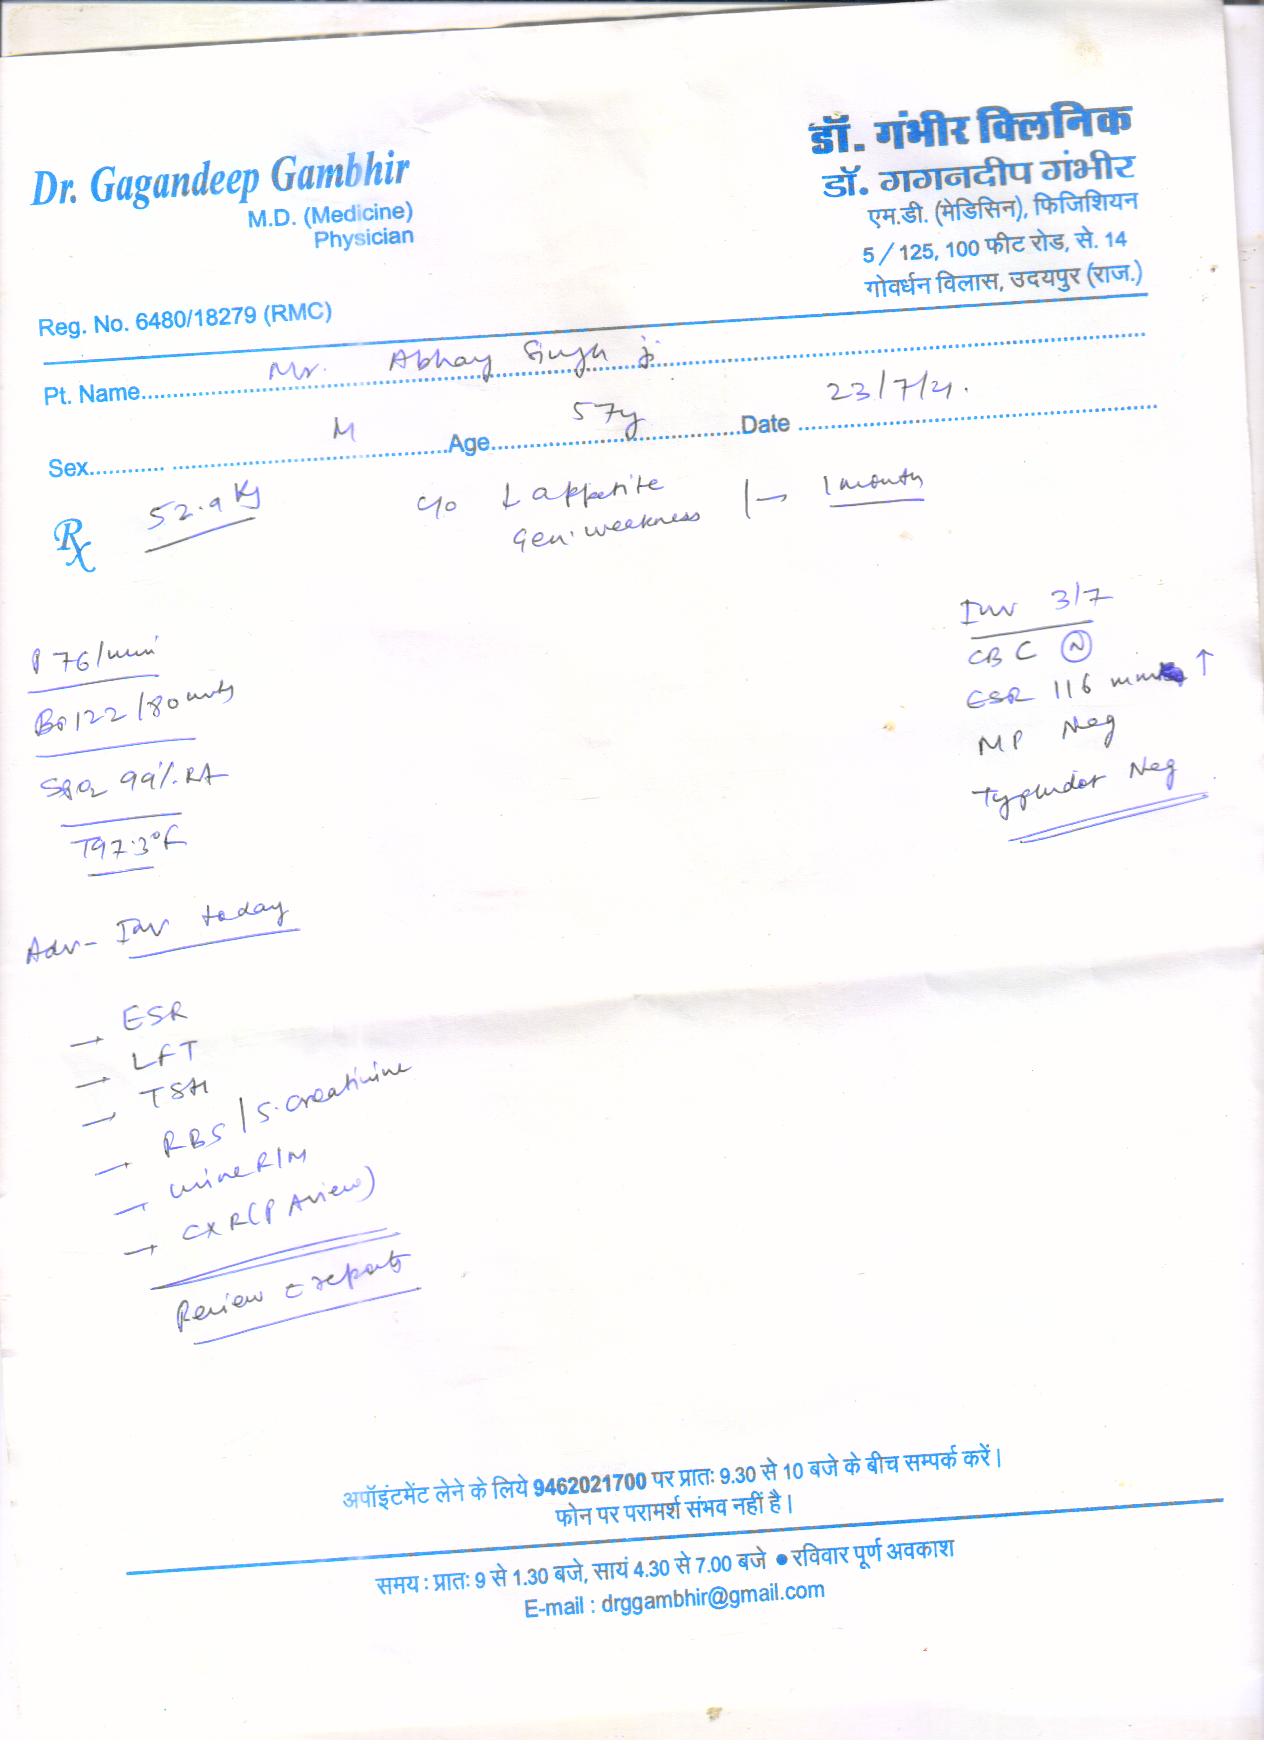 Dr. Gagandeep Gambhir
M.D. (Medicine)
Physician
Reg. No. 6480/18279 (RMC)
डॉ. गंभीर क्लिनिक
डॉ. गगनदीप गंभीर
एम.डी. (मेडिसिन), फिजिशियन
5/125, 100 फीट रोड, से. 14
गोवर्धन विलास, उदयपुर (राज.)
Pt. Name Mr. Abhay Singh ji
Sex M Age 57y Date 23/7/21.
Rx 52.9 Kg
c/o ↓ appetite
Gen. weakness
1 month
Inv 3/7
CBC (N)
ESR 116 mm ↑
MP Neg
Typhidot Neg
P 76/min
BP 122/80 mmHg
SpO2 99% RA
T 97.3°F
Adv- Inv today
→ ESR
→ LFT
→ TSH
→ RBS / S. Creatinine
→ urine R/M
→ CXR (PA view)
Review c reports
अपॉइंटमेंट लेने के लिये 9462021700 पर प्रातः 9.30 से 10 बजे के बीच सम्पर्क करें।
फोन पर परामर्श संभव नहीं है।
समय : प्रातः 9 से 1.30 बजे, सायं 4.30 से 7.00 बजे ● रविवार पूर्ण अवकाश
E-mail : drggambhir@gmail.com